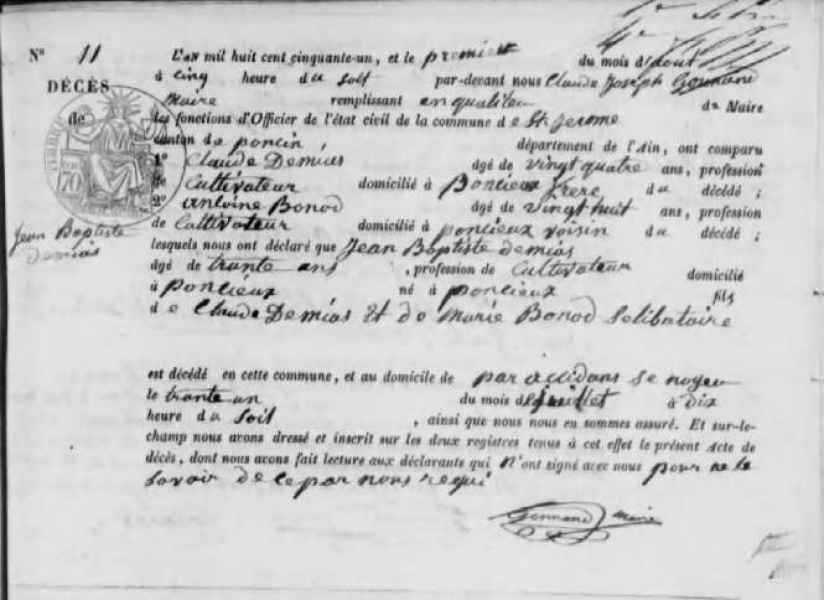 N° 11
DÉCÈS
de
Jean Baptiste
Demias
L'an mil huit cent cinquante-un, et le premier du mois d'aout
à cinq heure du soit par-devant nous Claude Joseph
Maire remplissant en qualité de Maire
les fonctions d'Officier de l'état civil de la commune de St Jerome
canton de poncin département de l'Ain, ont comparu
1° Claude Demias âgé de vingt quatre ans, profession
de Cultivateur domicilié à Poncieux frere du décédé ;
2° antoine Bonod âgé de vingt huit ans, profession
de Cultivateur domicilié à poncieux voisin du décédé ;
lesquels nous ont déclaré que Jean Baptiste demias
âgé de trante ans , profession de Cultivateur domicilié
à Poncieux né à poncieux fils
de Claude Demias Et de Marie Bonod Selibataire
est décédé en cette commune, et au domicile de par accidans se noyer
le trante un du mois de juillet à dix
heure du soit , ainsi que nous nous en sommes assuré. Et sur-le-
champ nous avons dressé et inscrit sur les deux registres tenus à cet effet le présent Acte de
décès, dont nous avons fait lecture aux déclarants qui n'ont signé avec nous pour ne le
savoir de ce par nous requi
Germand maire
70